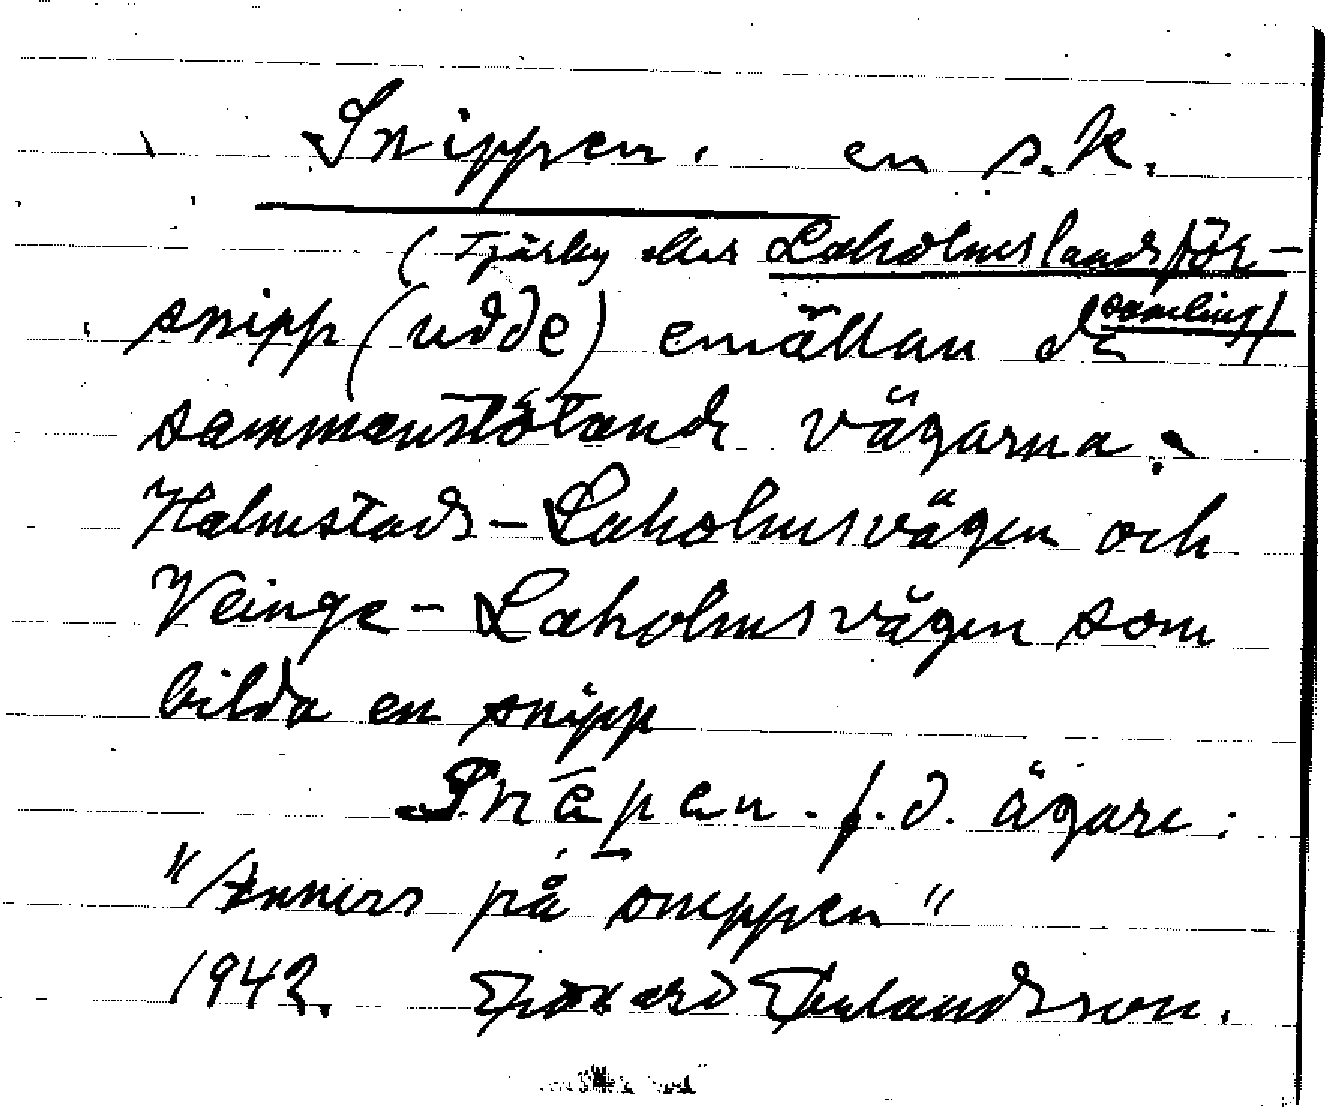 Snippen. en s.k.
(Tjärby eller Laholms landsför-
samling)
snipp (udde) emällan de
sammanstötande vägarna:
Halmstads-Laholmsvägen och
Veinge-Laholmsvägen som
bilda en snipp
Snēpen. f.d. ägare:
"Anners på sneppen"
1942.